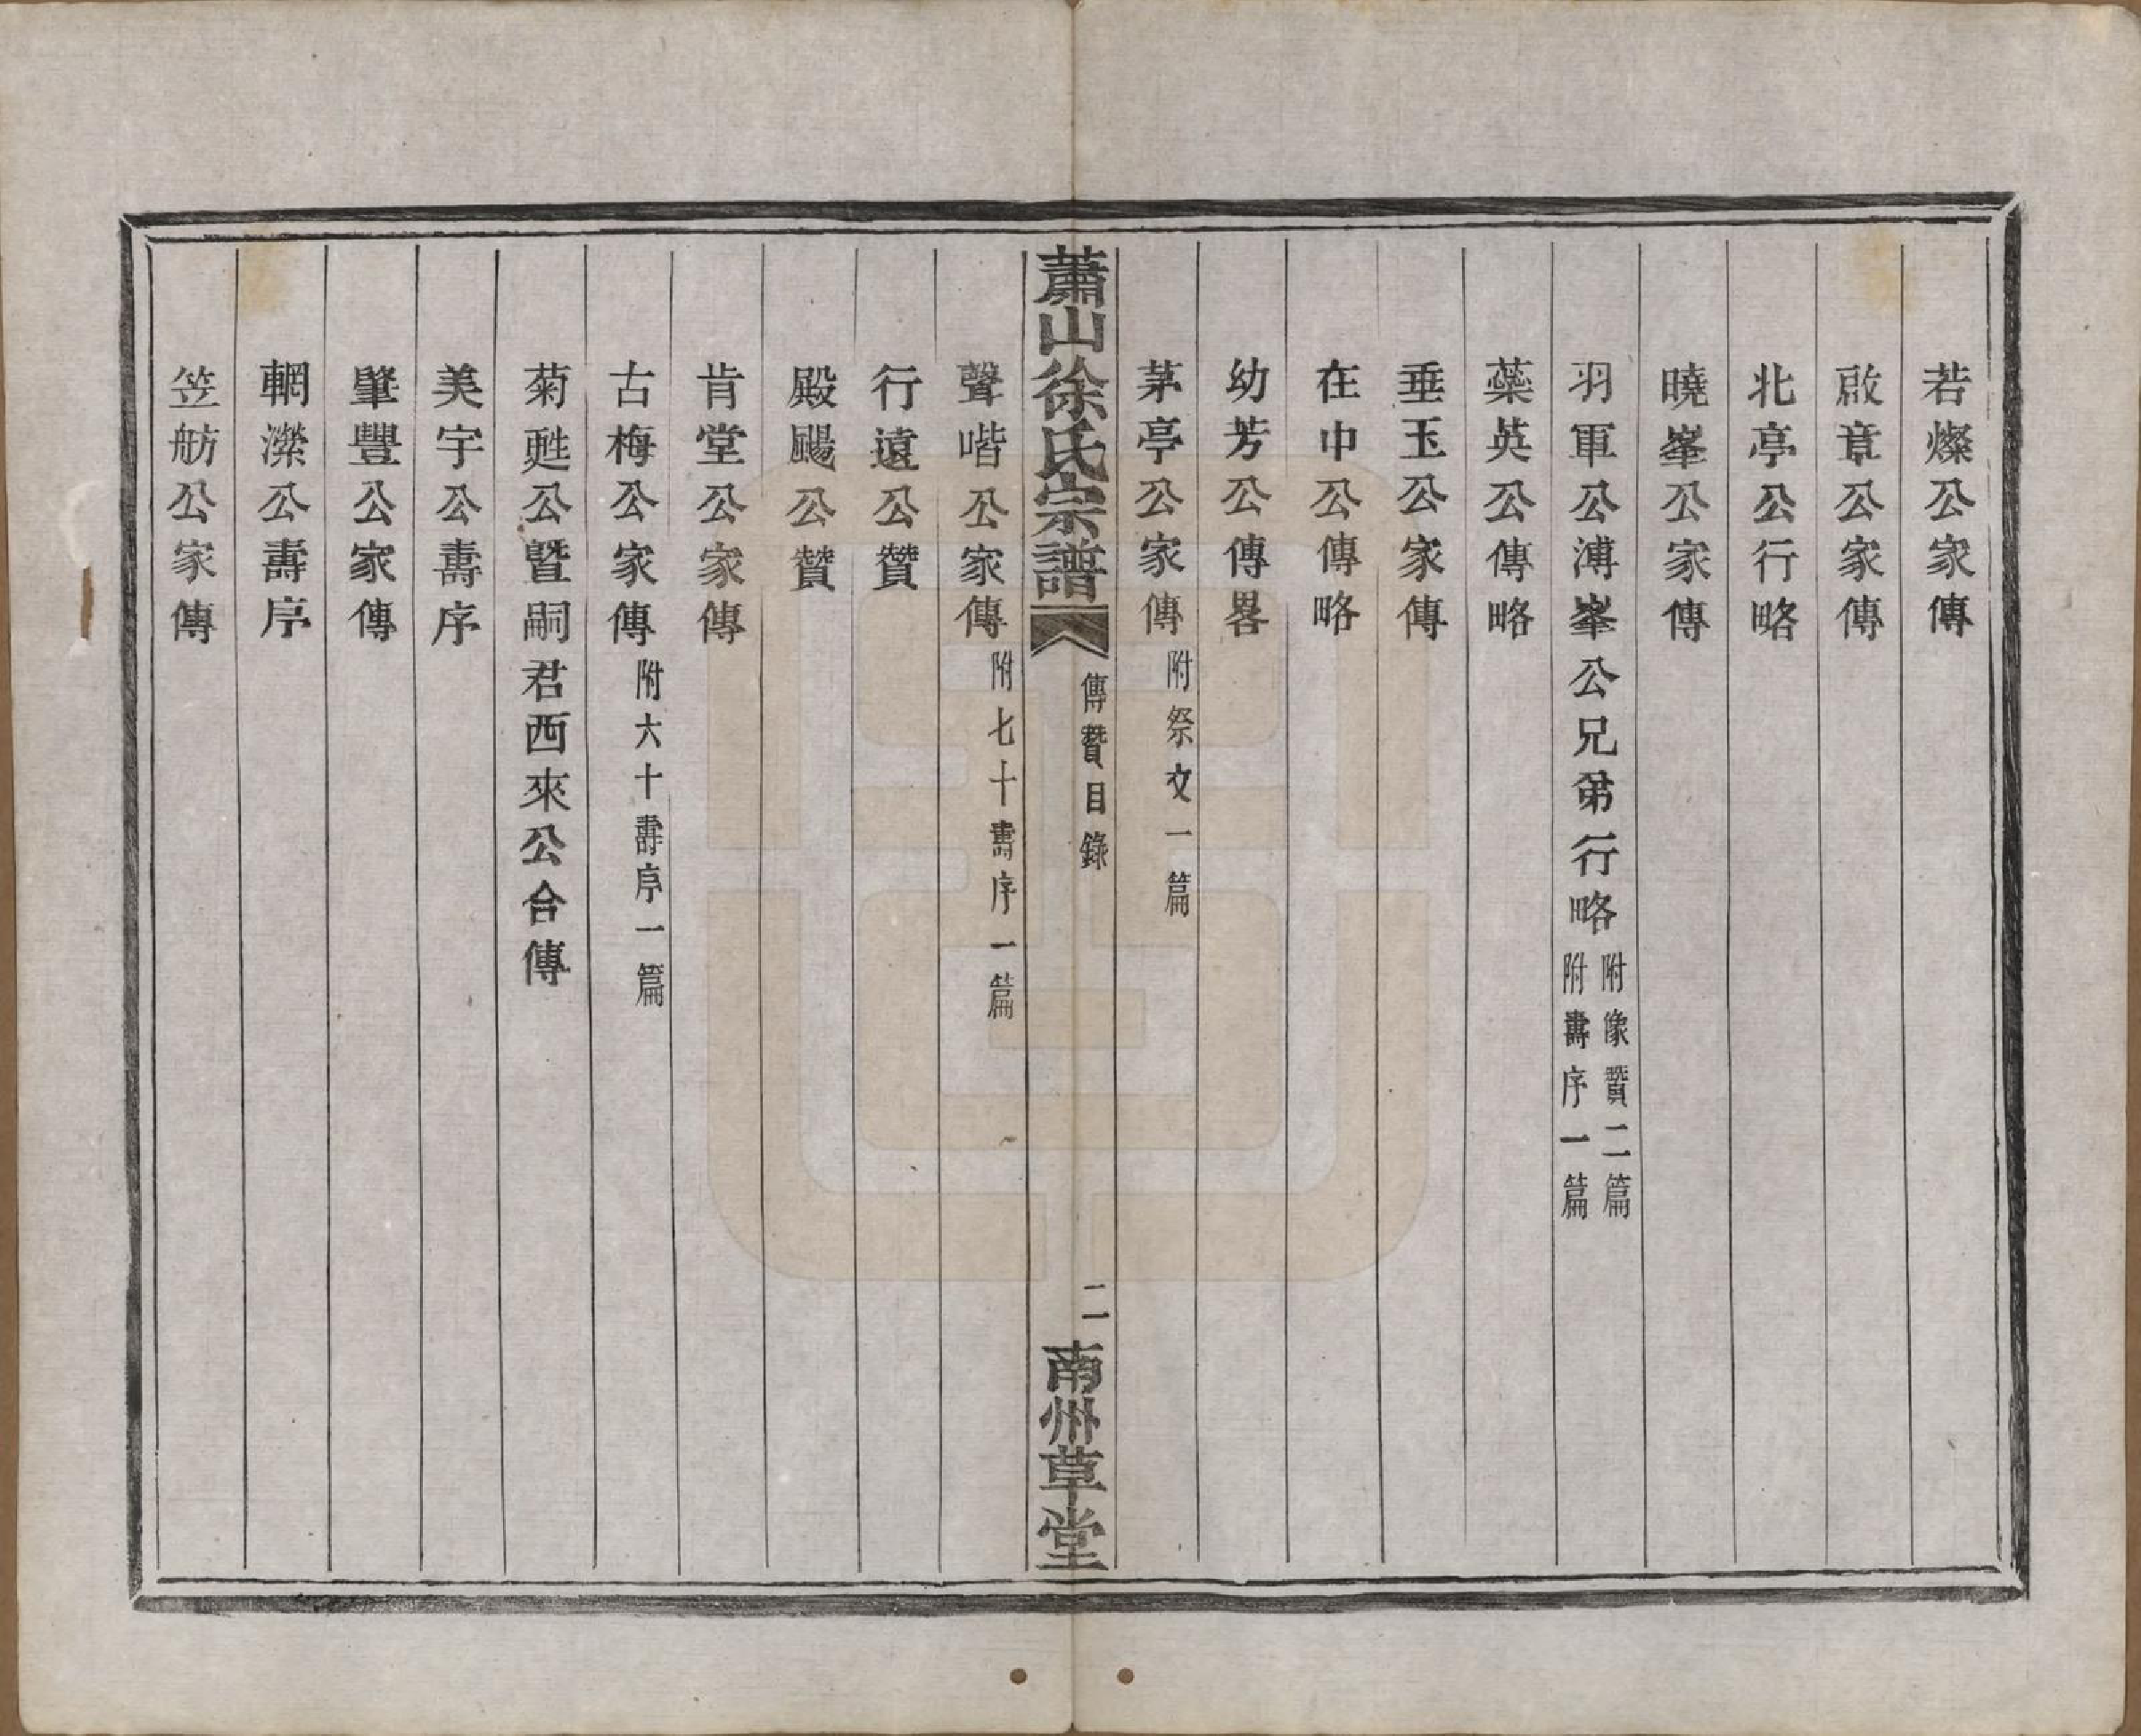 若燦公家傳
啟章公家傳
北亭公行略
曉峯公家傳
羽軍公溥峯公兄弟行略附像贊二篇
附壽序一篇
蘂英公傳略
垂玉公家傳
在中公傳略
幼芳公傳畧
茅亭公家傳附祭文一篇
蕭山徐氏宗譜 傳贊目錄 二 南州草堂
聲喈公家傳附七十壽序一篇
行遠公贊
殿颺公贊
肯堂公家傳
古梅公家傳附六十壽序一篇
菊甦公暨嗣君西來公合傳
美宇公壽序
肇豐公家傳
輞濼公壽序
笠舫公家傳